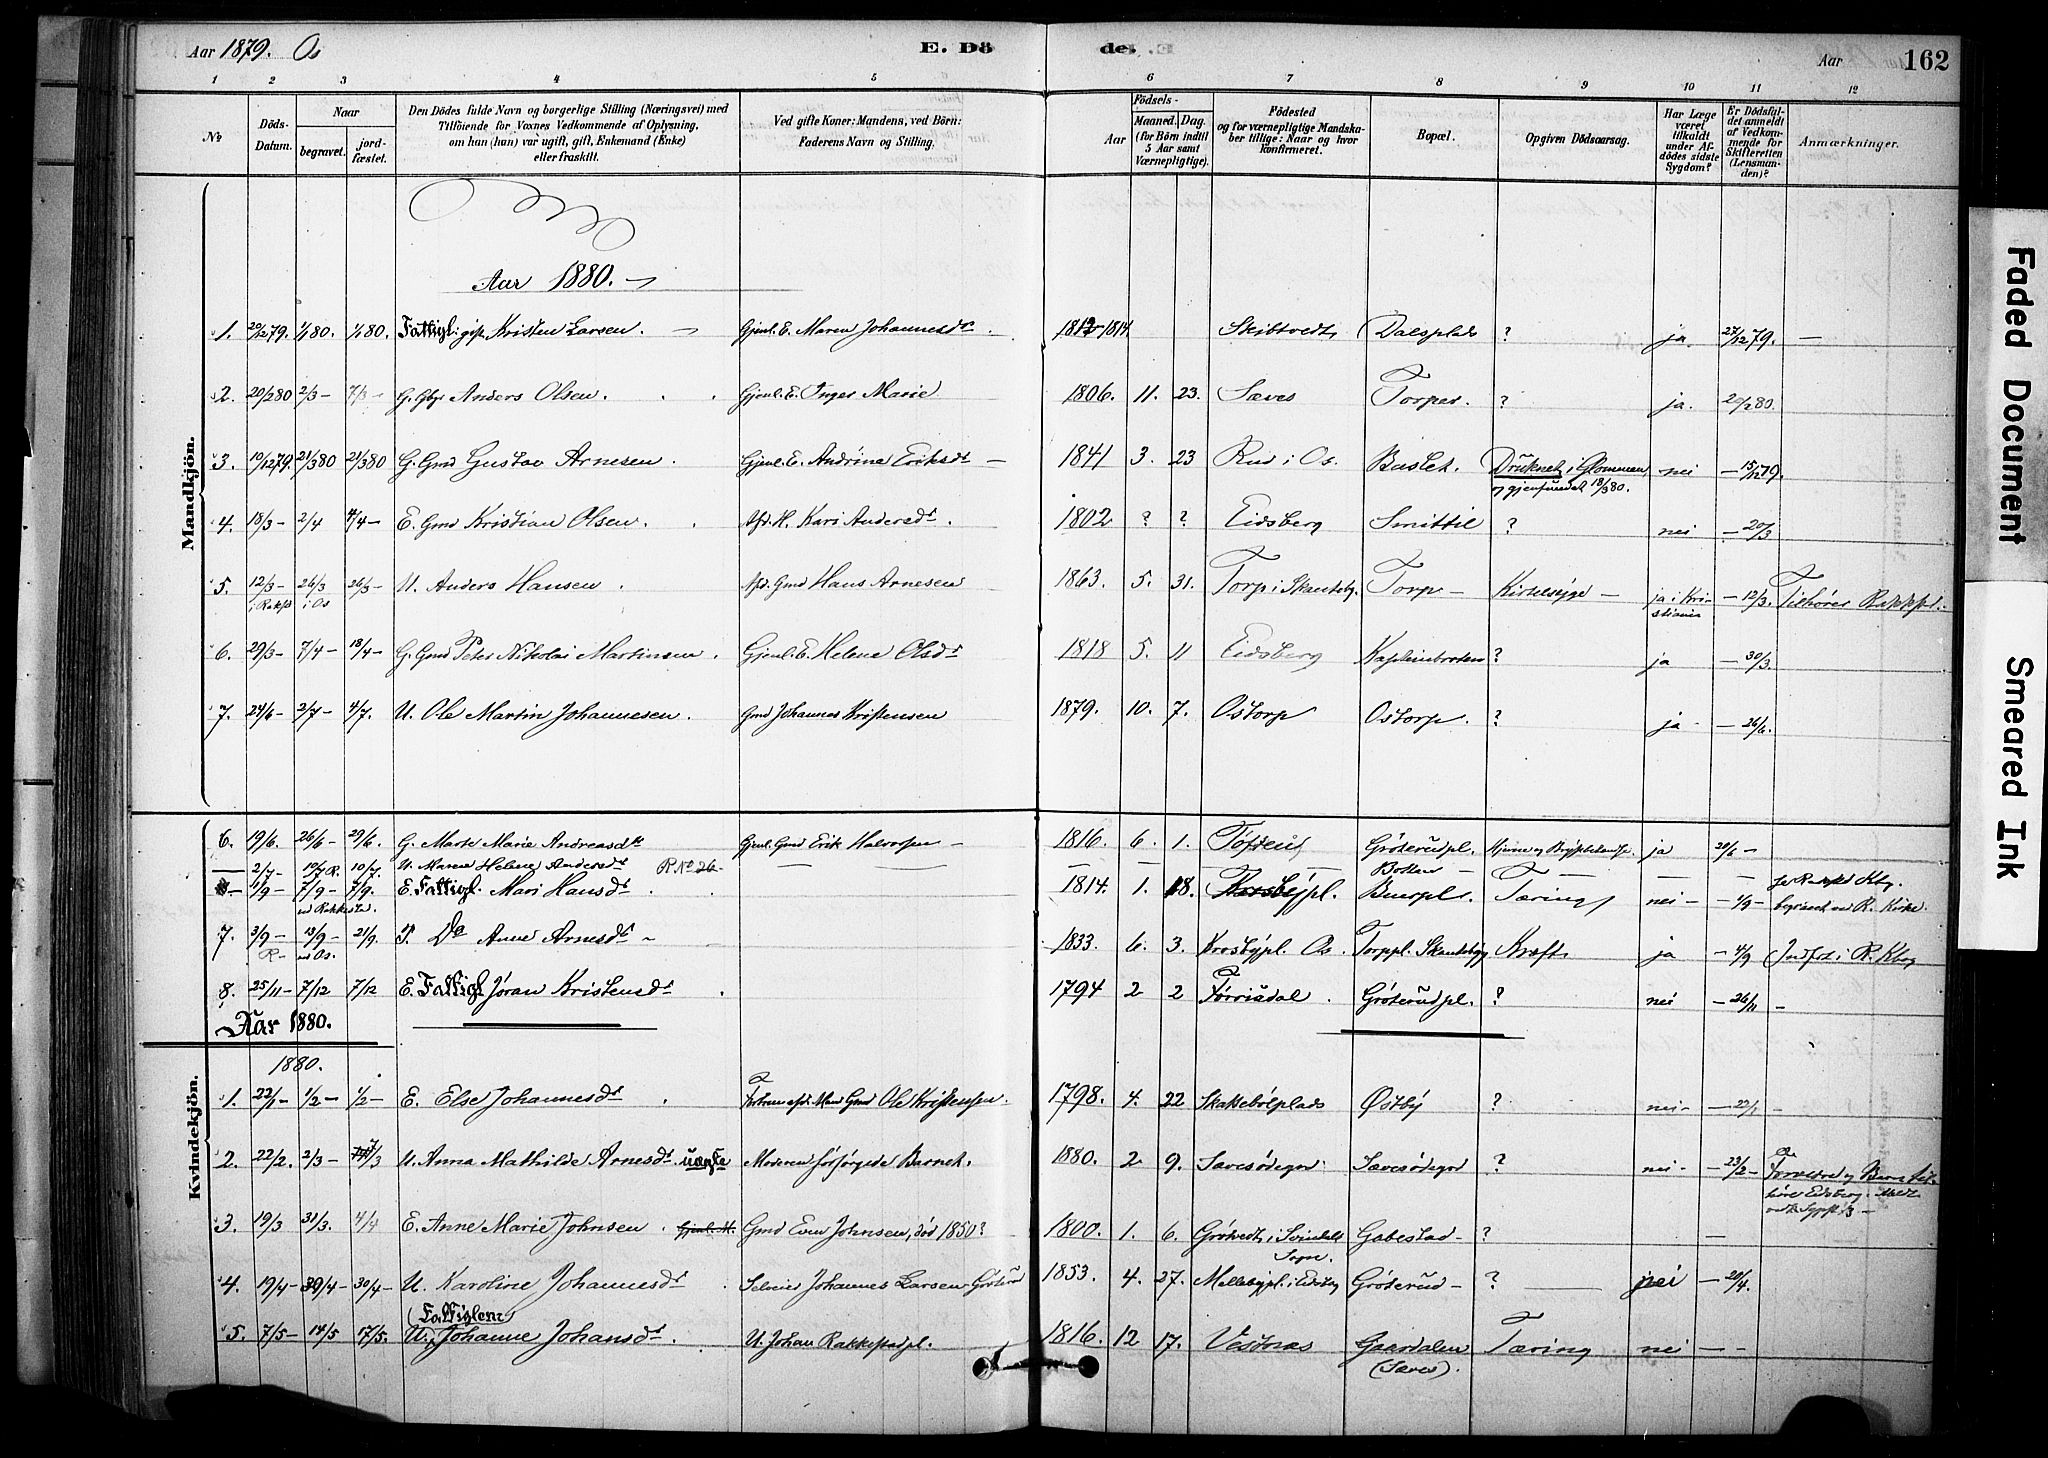 Aar 1879. Os
E. Dö
de.
Aar
162
1 2 3 4 5 6 7 8 9 10 11 12
No
Döds-Datum.
Naar
begravet.
jordfæstet.
Den Dödes fulde Navn og borgerlige Stilling (Næringsvei) med
Tilföiende for Voxnes Vedkommende af Oplysning,
om han (hun) var ugift, gift, Enkemand (Enke)
eller fraskilt.
Ved gifte Koner: Mandens, ved Börn:
Faderens Navn og Stilling.
Födsels-
Aar
Maaned. Dag.
(for Börn indtil
5 Aar samt
Værnepligtige).
Födested
og for værnepligtige Mandska-
ber tillige: Naar og hvor
konfirmeret.
Bopæl.
Opgiven Dödsaarsag.
Har Læge
været
tilkaldt
under Af-
dödes sidste
Sygdom?
Er Dödsfal-
det anmeldt
af Vedkom-
mende for
Skifteretten
(Lensman-
den)?
Anmærkninger.
Mandkjön.
Aar 1880.
1. 20/12 79. 1/1 80. 1/1 80. Fattigl: gift Kristen Larsen. Gjenl. E. Maren Johannesdr. 1812-1814 Skibtvedt Dalsplads ? ja 27/12 79. —
2. 20/2 80 2/3 — 7/3 — G. Gbr Anders Olsen. Gjenl. E. Inger Marie 1806. 11. 23. Sæves Torper. ? ja. 20/2 80.
3. 10/12 79. 21/3 80 21/3 80 G. Gmd Gustav Arnesen. Gjenl. E. Andrine Eriksdr — 1841 3. 23 Rud i Os. Baslet. Druknet i Glommen nei — 15/12 79.
og gjenfundet 18/3 80.
4. 18/3 — 2/4 4/4 — E. Gmd Kristian Olsen. Afd. H. Kari Andersdr. 1802 ? ? Eidsberg Smittil ? nei — 20/3
5. 12/3 — 26/3 26/3 — U. Anders Hansen. Afd. Gmd Hans Arnesen 1863. 5. 31. Torp i Skantebg. Torp — Kirtelsyge — ja i Kri- — 12/3. Tilhører Rakkst.
i Rakst i Os stiania
6. 29/3 — 7/4 — 18/4 — G. Gmd Peter Nikolai Martinsen. Gjenl. E. Helene Olsdr 1818 5. 11 Eidsberg Kapteinbraten ? ja — 30/3.
7. 24/6 — 2/7 — 4/7. U. Ole Martin Johannesen. Gmd Johannes Kristensen 1879. 10. 7. Ostorp Ostorp. ? ja — — 26/6.
6. 19/6. 26/6 — 29/6. G. Marte Marie Andreasdr Gjenl. Gmd Erik Halvorsen — 1816. 6. 1. Gröterudpl. ja 20/6 —
— 2/7 — 10/7 R. 10/7. U. Maren Helene Andersdr R. No 26 —
4/9 — 7/9 — 7/9. E. Fattigl. Mari Hansdr. 1814. 1. 18. Tæring nei — — 4/9 —
ved Rakkestad. begravet ved R. Kirke.
7. 3/9 — 13/9 — 21/9. Do Anne Arnesdr — 1833. 6. 3. Krosbypl. Os. Torppl. Skantebyg Kræft ja — 4/9 Indført i R. Kbog
R — ved Os.
8. 25/11 — 7/12 7/12 E. Fattigl Jøran Kristensdr. 1794 2 2 Førrisdal. Gröterudpl. ? nei — 26/11 —
Aar 1880.
Kvindekjön.
1880.
1. 22/1 — 1/2 — 1/2 — E. Else Johannesdr. Forhen afd. Mand Gmd Ole Kristensen. 1798. 4. 22 Skakkebölplads Østby ? nei — — 22/1 —
2. 22/2. 2/3 — 7/3 U. Anna Mathilde Arnesdr uægte Moderen forsörgede Barnet. 1880. 2 9. Savesødegor. Savesødegor ? nei — — 23/2 — Forældre og Barn til-
hører Eidsberg.
3. 19/3 31/3. 4/4 E. Anne Marie Johnsen. Gjenl. M. Gmd Even Johnsen, död 1850? 1800. 1. 6. Grötvedt i Svindals Gabestad — ? —
Sogn.
4. 19/4 — 30/4 — 30/4 — U. Karoline Johannesdr. Selveier Johannes Larsen Gröterud 1853. 4. 27. Mellebypl. i Eidsbg Gröterud — ? — nei 20/4.
Fattiglem
5. 7/5 — 14/5 17/5. U. Johanne Johansdr. U. Johan Rakkestadpl. 1816. 12 17. Vestraas Gaardalen Tæring nei — —
(Sæves).
Faded Document
Smeared Ink